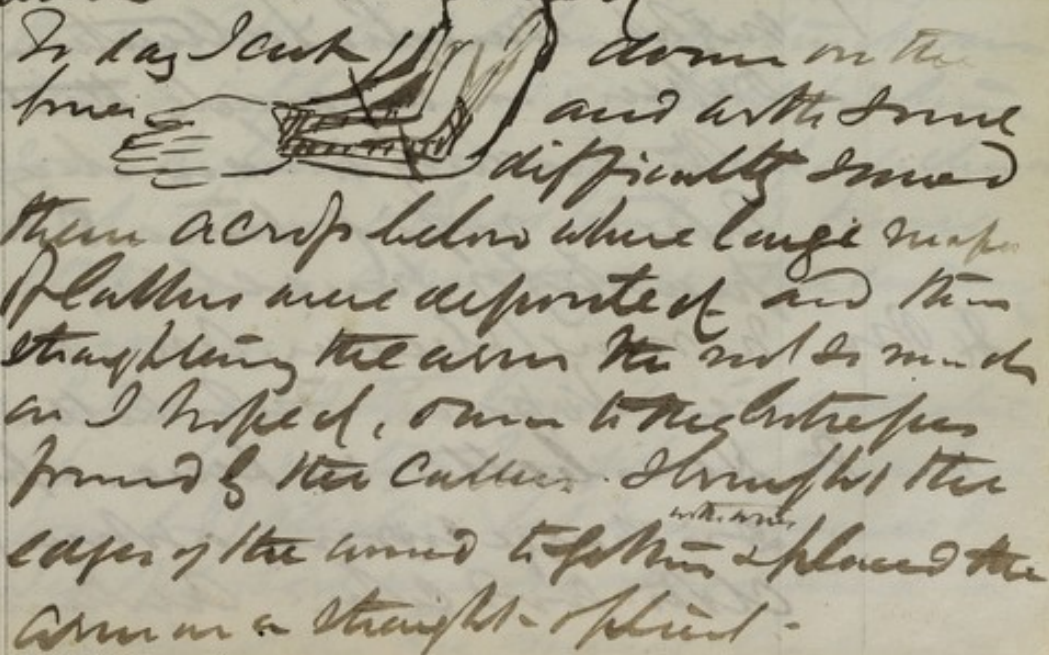 To day I cut down on the
bones and with some
difficulty sawed
them across below where large masses
of Callus were deposited and then
straightening the arm tho not so much
as I hoped, owing to the
formed by the Callus. I brought the
edges of the wound together with wires & placed the
arm on a straight splint.